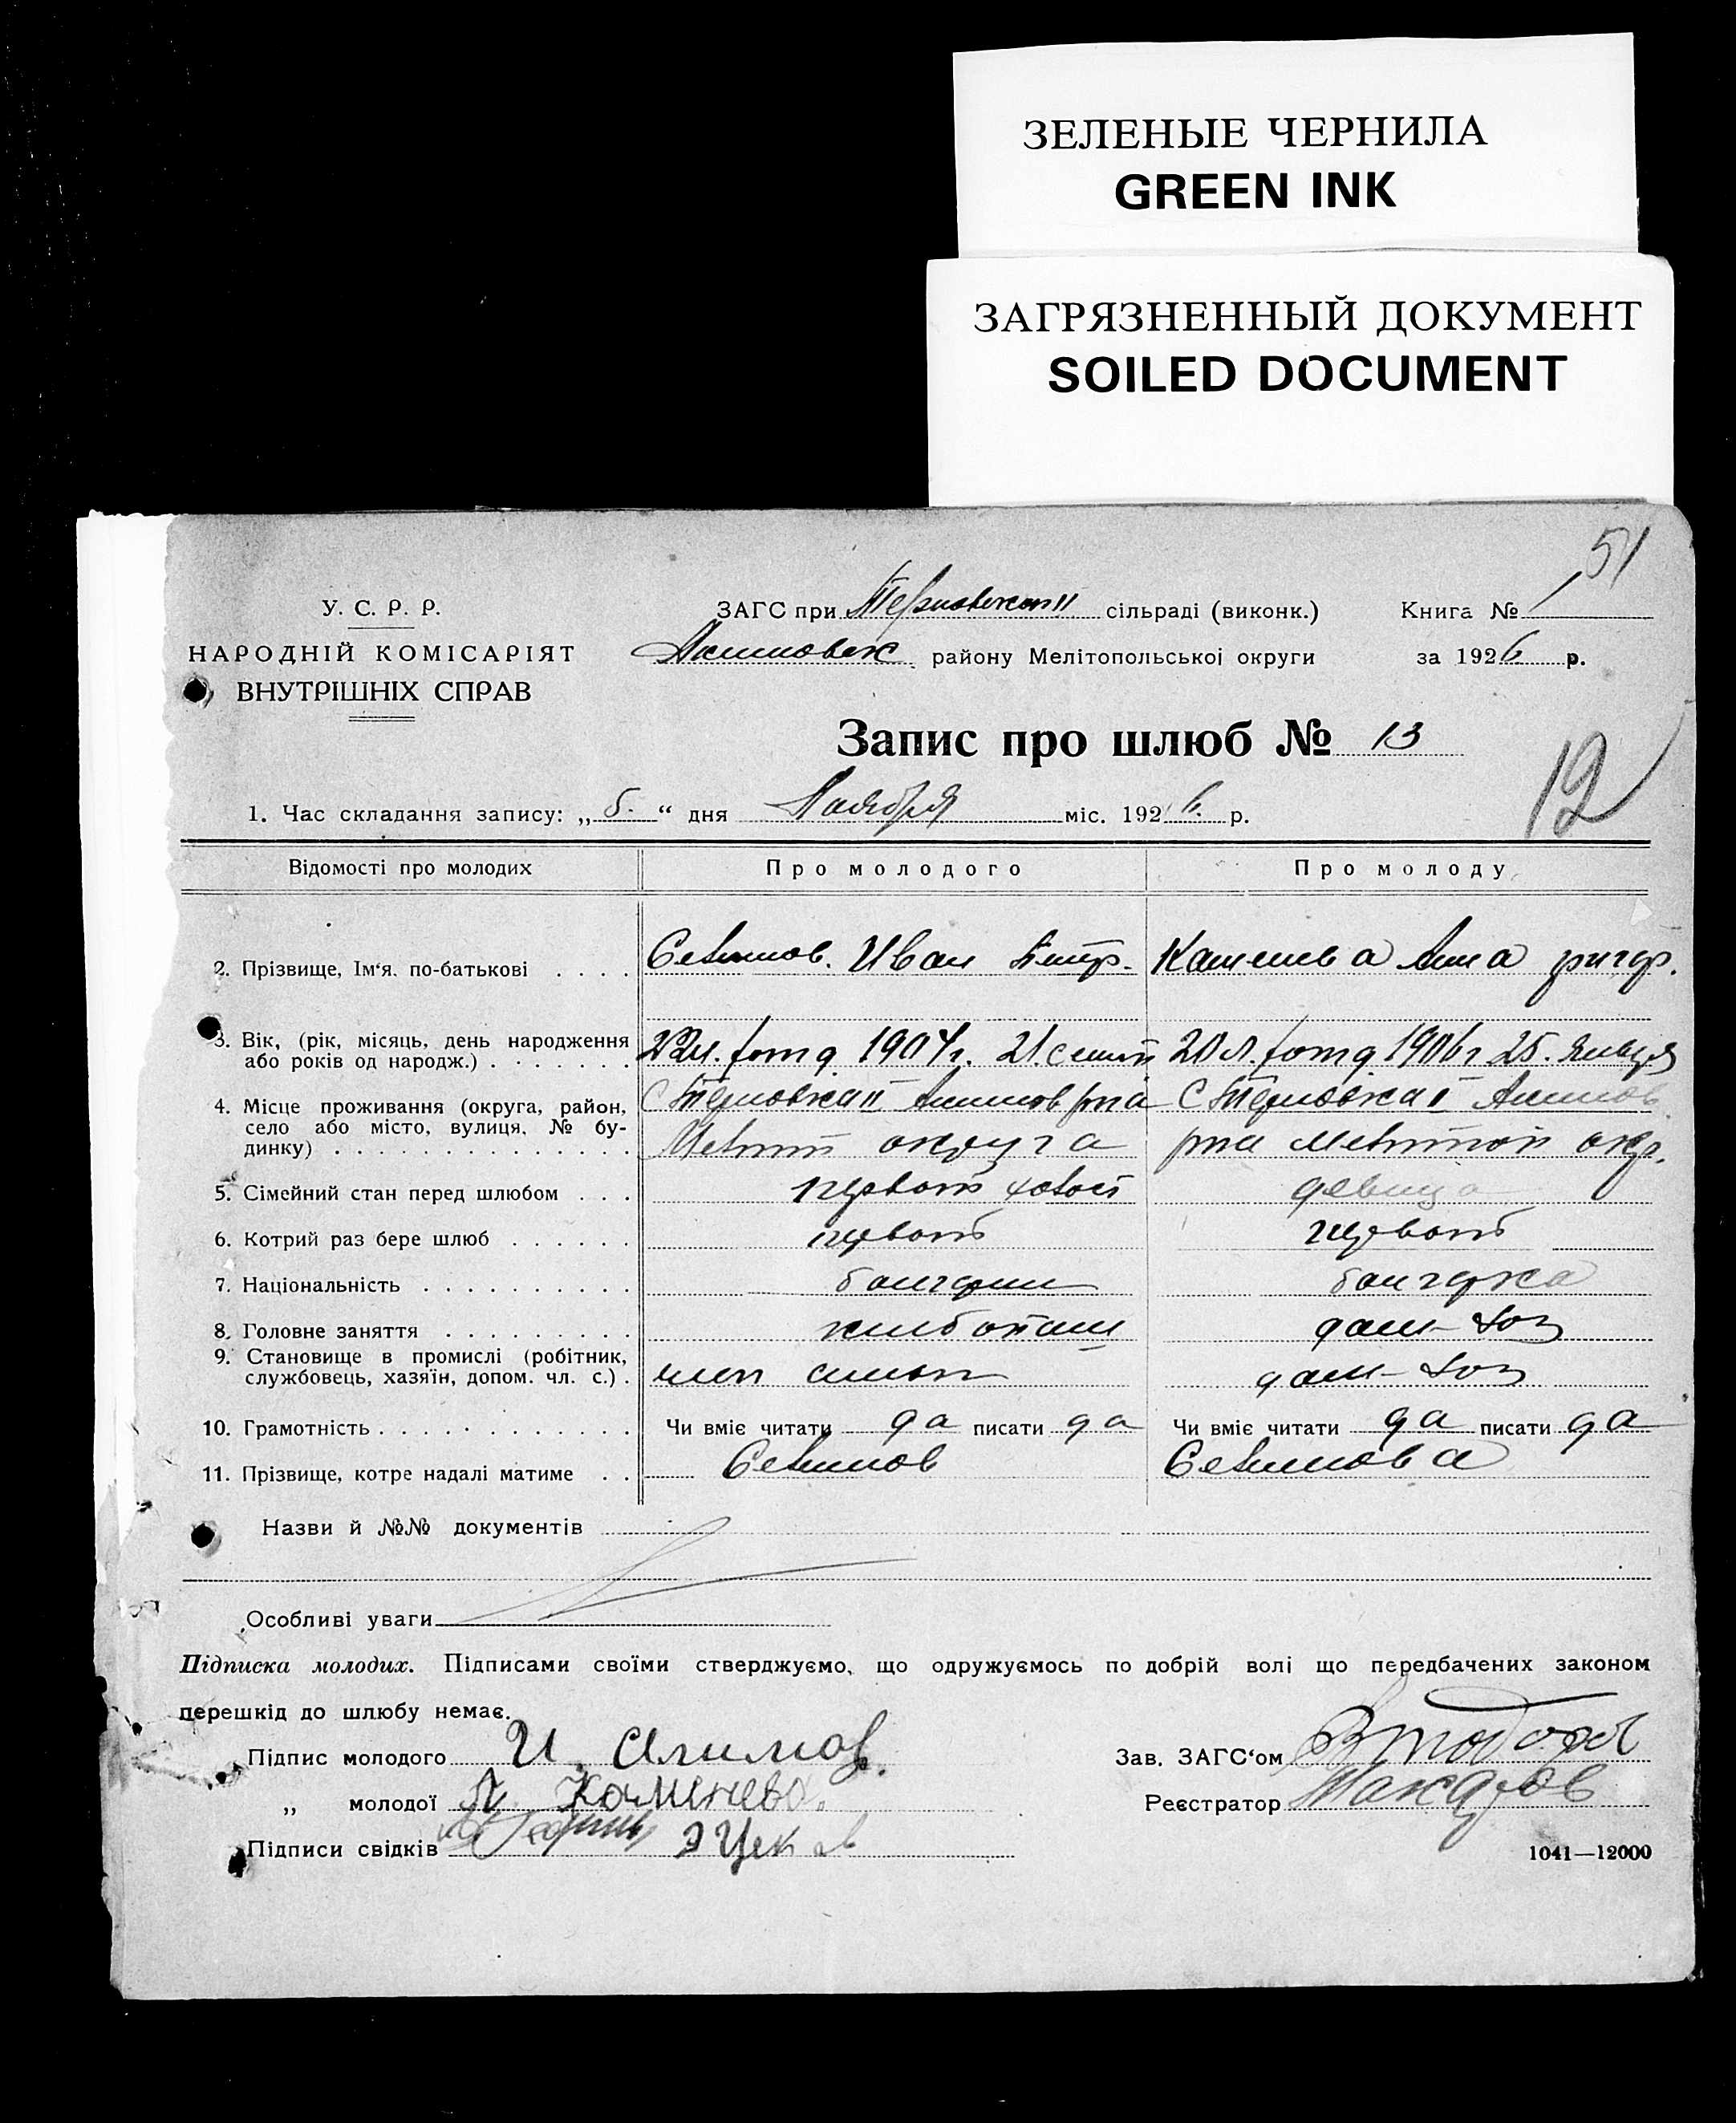 ЗЕЛЕНЫЕ ЧЕРНИЛА
GREEN INK
ЗАГРЯЗНЕННЫЙ ДОКУМЕНТ
SOILED DOCUMENT
51
У. С. Р. Р.
НАРОДНІЙ КОМІСАРІЯТ
ВНУТРІШНІХ СПРАВ
ЗАГС при Терновской II сільраді (виконк.)
Акимовск району Мелітопольської округи
Книга № 1
за 1926 р.
Запис про шлюб № 13
12
1. Час складання запису: „5.“ дня Ноября міс. 1926. р.
Відомості про молодих Про молодого Про молоду
2. Прізвище, Ім'я. по-батькові . . . . Иван Петр. Анна григор.
3. Вік, (рік, місяць, день народження
або років од народж.) . . . . . . . 22л. 1904г. 21. 20 л. 1906г 25. Января
4. Місце проживання (округа, район, с Терновка II Акимов р-на с Терновка II Акимов.
село або місто, вулиця, № бу-
динку) . . . . . . . . . . . . . . Мелит округа р-на Мелитоп окр.
5. Сімейний стан перед шлюбом . . . холост девица
6. Котрий раз бере шлюб . . . . . . первый первый
7. Національність . . . . . . . . . . болгарин болгарка
8. Головне заняття . . . . . . . . . хлебопаш дом-хоз
9. Становище в промислі (робітник,
службовець, хазяїн, допом. чл. с.) . член семьи дом-хоз
10. Грамотність . . . . . . . . . . . . Чи вміє читати да писати да Чи вміє читати да писати да
11. Прізвище, котре надалі матиме . .
Назви й №№ документів
Особливі уваги
Підписка молодих. Підписами своїми стверджуємо, що одружуємось по добрій волі що передбачених законом
перешкід до шлюбу немає.
Підпис молодого И.
Зав. ЗАГС'ом
„ молодої А. Каменева.
Реєстратор
Підписи свідків
1041—12000